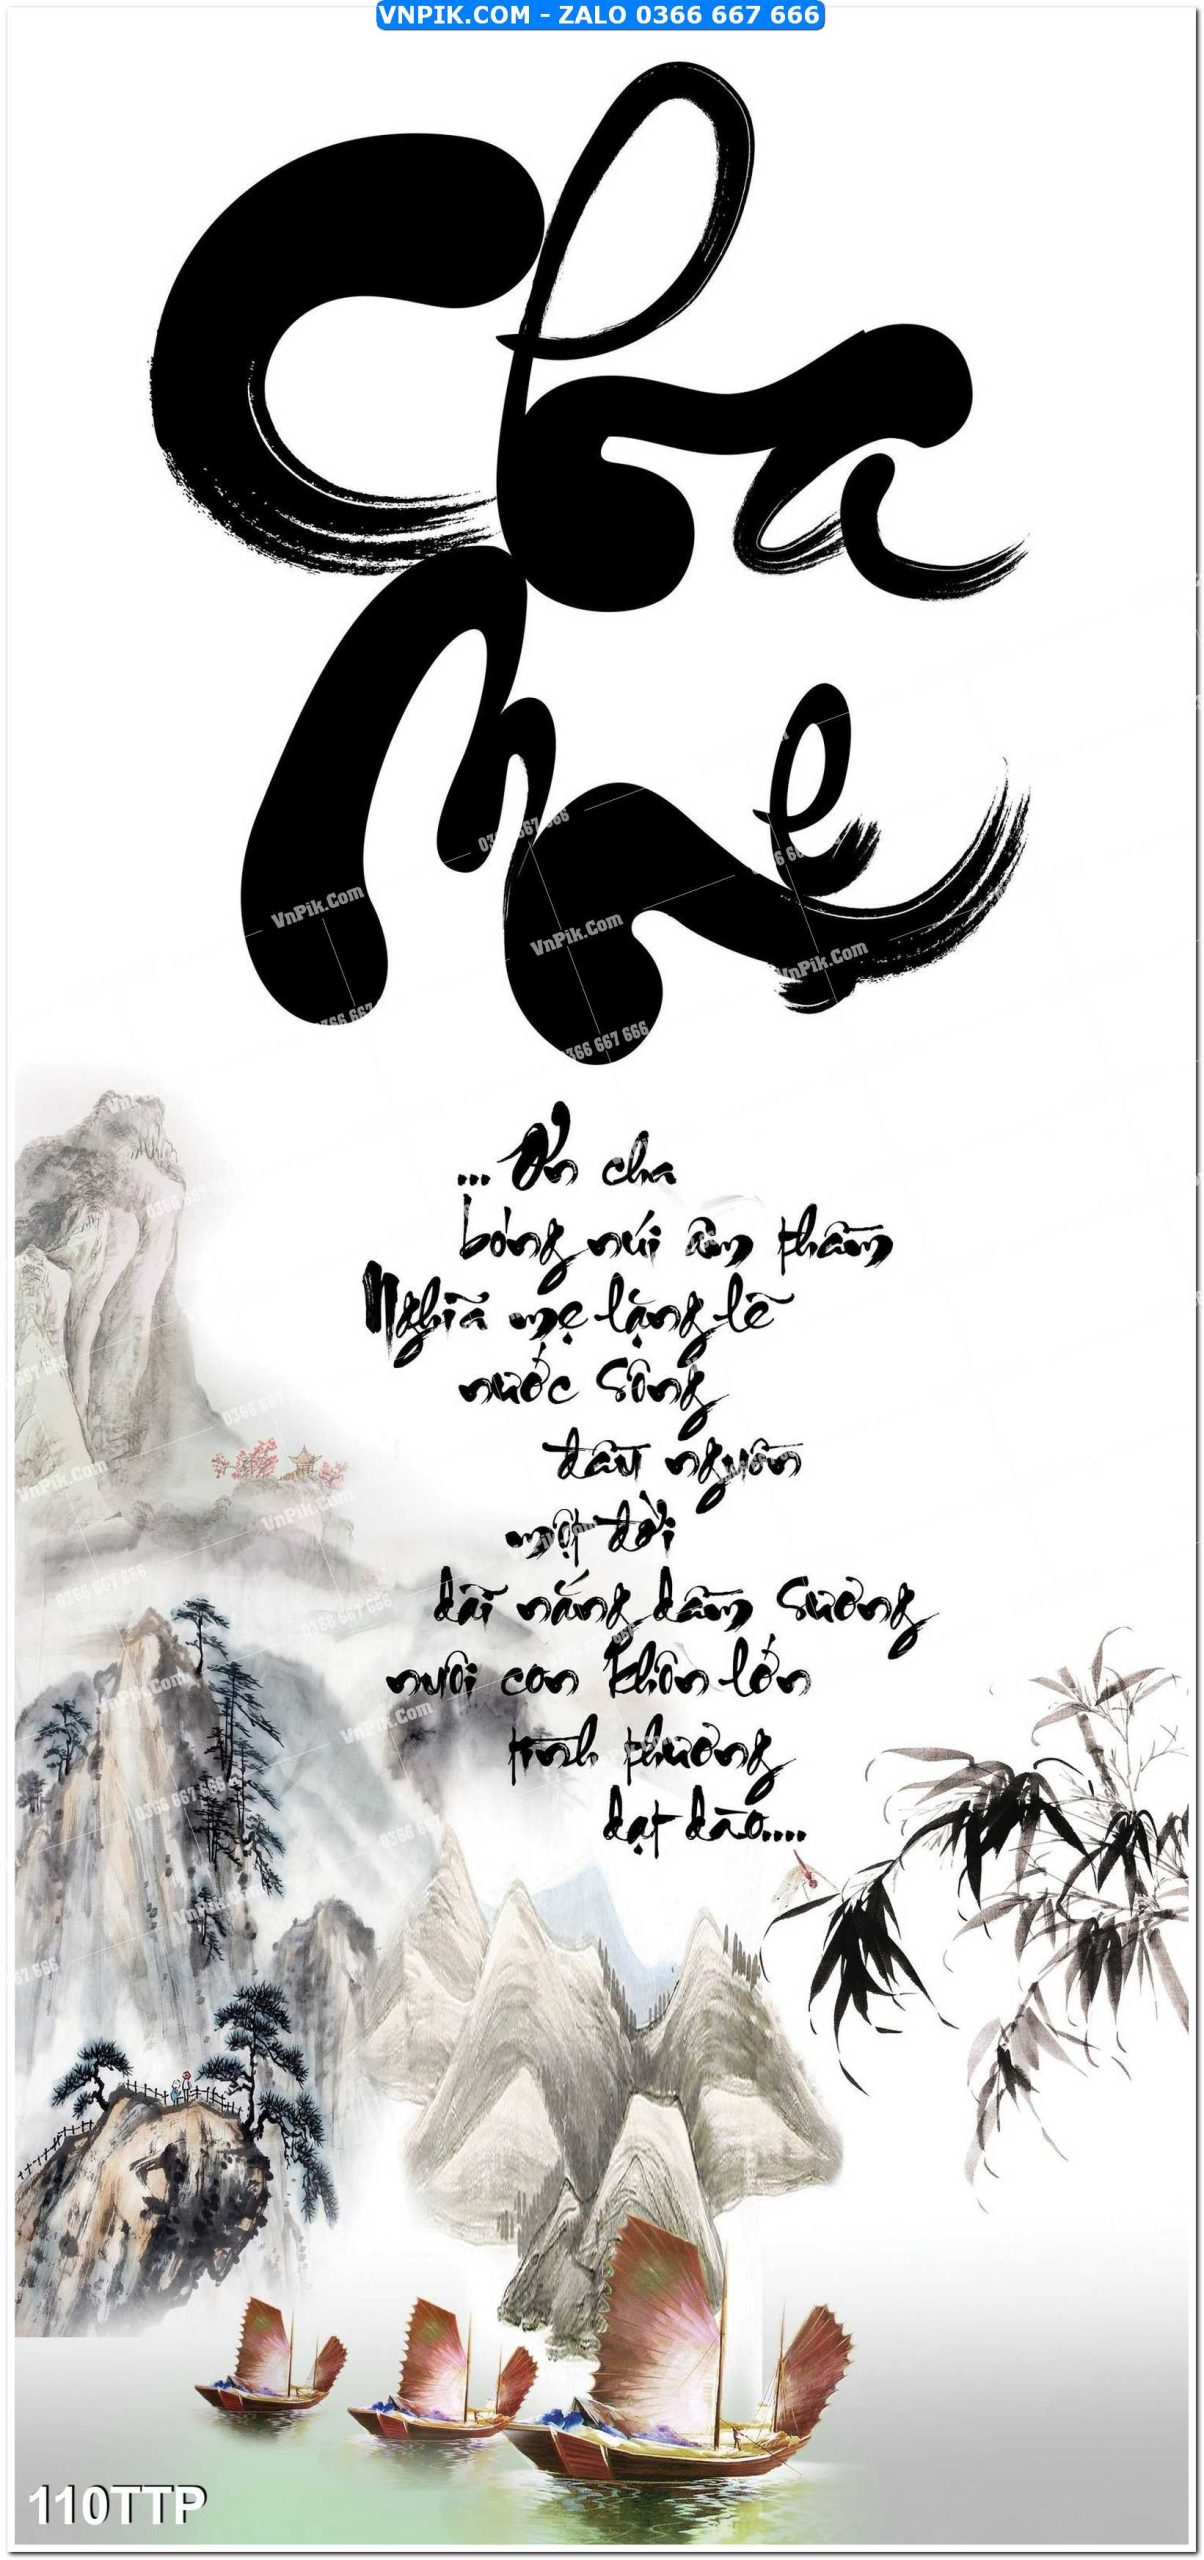 VNPIK.COM - ZALO 0366 667 666
Cha
Mẹ
... Ơn cha
bóng núi âm thầm
Nghĩa mẹ lặng lẽ
nước sông
đầu nguồn
một đời
dãi nắng dầm sương
nuôi con khôn lớn
tình thương
dạt dào....
110TTP